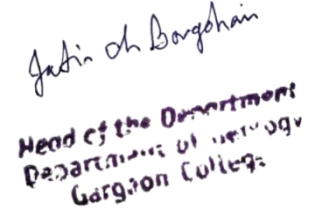 Jatin ch Borgohain
Head of the Department
Department of
Gargaon College